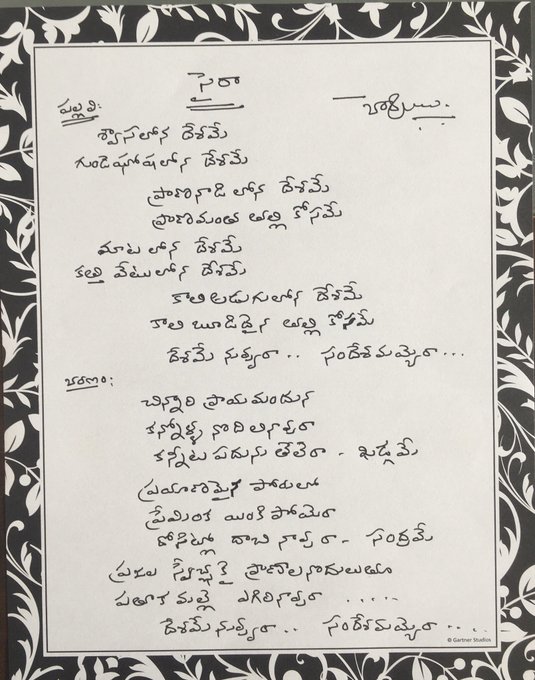 సైరా
పల్లవి:
శ్వాసలోన దేశమే
గుండెఘోషలోన దేశమే
ప్రాణనాడి లోన దేశమే
ప్రాణమంత తల్లి కోసమే
మాటలోన దేశమే
కత్తి వేటులోన దేశమే
కాలి అడుగులోన దేశమే
కాలి బూడిదైన తల్లి కోసమే
దేశమే నువ్వురా .. సందేశమయ్యెరా ...
చరణం:
చిన్నారి ప్రాయమందున
కన్నోళ్ళ నొదిలినావురా
కన్నీట పదును తేలెరా - ఖడ్గమే
ప్రయాణమైన పోరులో
ప్రేమింక యింకిపోయెరా
దాచినావురా - సంద్రమే
ప్రజల స్వేచ్ఛకై ప్రాణాలనొదులుతూ
పతాకమల్లె ఎగిరినావురా .....
దేశమే నువ్వురా .. సందేశమయ్యెరా ....
© Gartner Studios